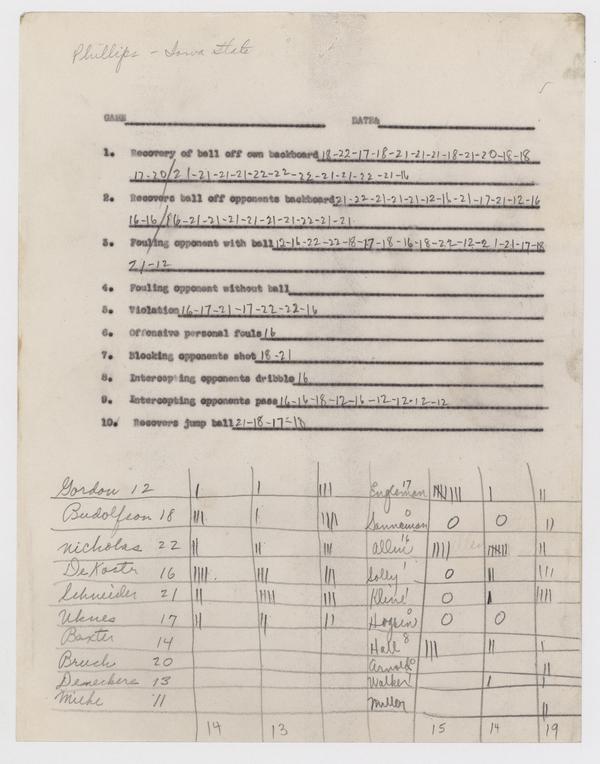 Phillips - Iowa State
GAME DATE
1. Recovery of ball off own backboard 18-22-17-18-21-21-21-18-21-20-18-18
17-20/21-21-21-21-22-22-22-21-21-22-21-16
2. Recovers ball off opponents backboard 21-22-21-21-21-12-16-21-17-21-12-16
16-16/86-21-21-21-21-21-21-22-21-21
3. Fouling opponent with ball 12-16-22-22-18-17-18-16-18-22-12-21-21-17-18
21-12
4. Fouling opponent without ball
5. Violation 16-17-21-17-22-22-16
6. Offensive personal fouls 16
7. Blocking opponents shot 18-21
8. Intercepting opponents dribble 16
9. Intercepting opponents pass 16-16-18-12-16-12-12-12-12
10. Recovers jump ball 21-18-17-18
Gordon 12 | | ||| Engleman 17 | ||
Budolfson 18 ||| | |||| 0 0 0 ||
Nicholas 22 || || ||| Allen 16 |||| ||
DeKoster 16 |||| ||| ||| Solly 1 0 || |||
Schneider 21 || |||| ||| Kline 1 0 ||||
Uknes 17 || || || 0 0 0
Baxter 14 Hall 8 ||| || |
Bruch 20 Arnold 0 ||
13 Walker 1 | |
11 Miller ||
14 13 15 14 19